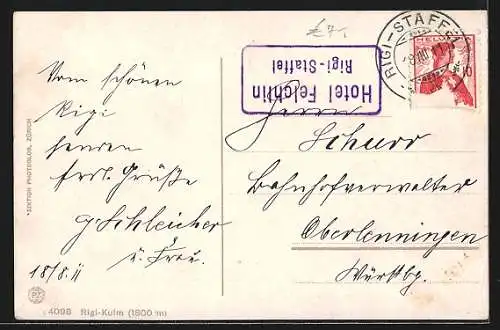 £ 7.-
RIGI-STAFFEL
HELVETIA
10
Hotel Felchlin
Rigi-Staffel
Vom schönen
Rigi
senden
frdl. Grüße
G. Schleicher
u. Frau.
18/8.11
Herrn
Schurr
Bahnhofverwalter
Oberlenningen
Württbg.
*EDITION PHOTOGLOB, ZÜRICH
4098 Rigi-Kulm (1800 m)